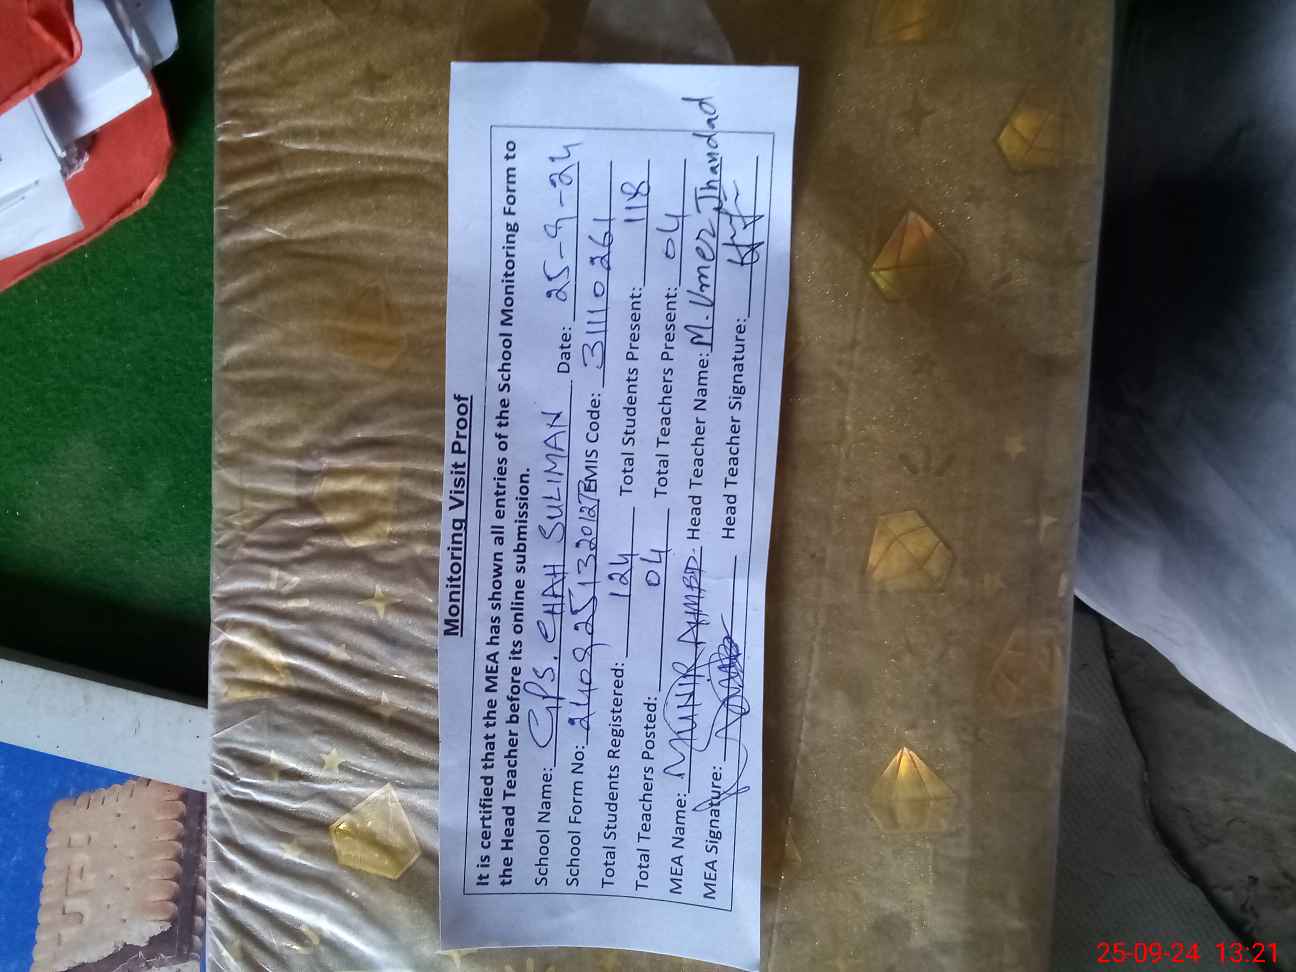 Monitoring Visit Proof
It is certified that the MEA has shown all entries of the School Monitoring Form to
the Head Teacher before its online submission.
School Name: GPS. CHAH SULIMAN Date: 25-9-24
School Form No: 2409251320127 EMIS Code: 31110261
Total Students Registered: 124 Total Students Present: 118
Total Teachers Posted: 04 Total Teachers Present: 04
MEA Name: MUNIR AHMED Head Teacher Name: M. Umer Jhandad
MEA Signature: Head Teacher Signature:
25-09-24 13:21